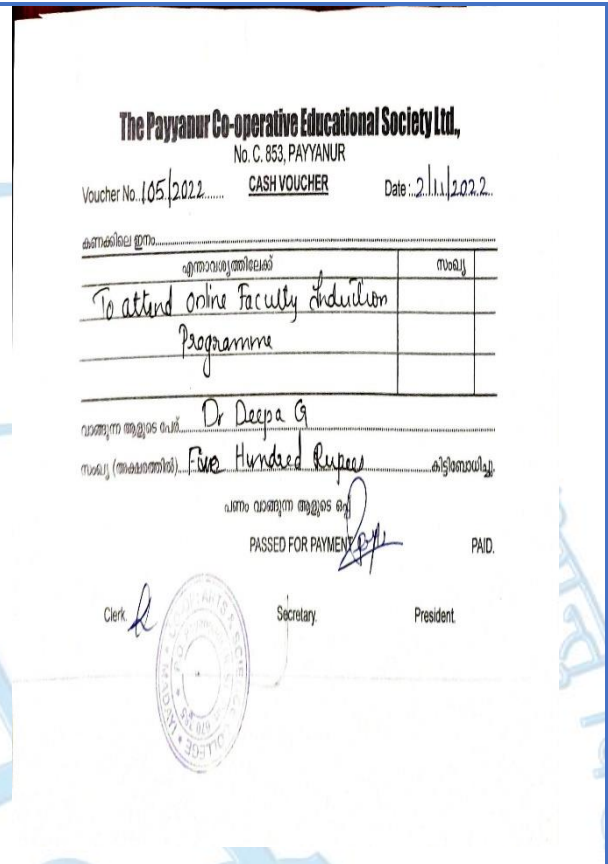 The Payyanur Co-operative Educational Society Ltd.,
No. C. 853, PAYYANUR
Voucher No. 105/2022 CASH VOUCHER Date: 2/11/2022
കണക്കിലെ ഇനം
എന്താവശ്യത്തിലേക്ക് സംഖ്യ
To attend online Faculty Induction
Programme
വാങ്ങുന്ന ആളുടെ പേര് Dr Deepa G
സംഖ്യ (അക്ഷരത്തിൽ) Five Hundred Rupees കിട്ടിബോധിച്ചു.
പണം വാങ്ങുന്ന ആളുടെ ഒപ്പ്
PASSED FOR PAYMENT PAID.
Clerk. Secretary. President.
CO-OP. ARTS & SCIENCE COLLEGE * MADAYI *